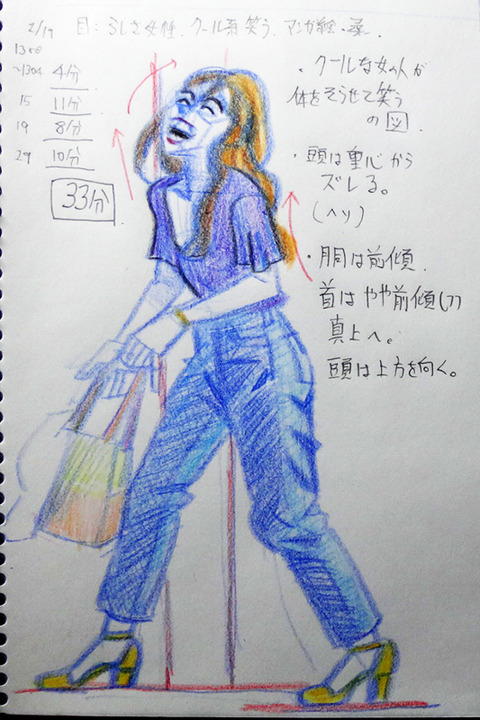 2/19 目:らしさ女性、クール系笑う、マンガ絵・
1300
~1304 4分
15 11分
19 8分
29 10分
33分
・クールな女の人が
体をそらせて笑う
の図.
・頭は重心から
ズレる。
(ヘソ)
・胴は前傾.
首はやや前傾(7)
真上へ。
頭は上方を向く。